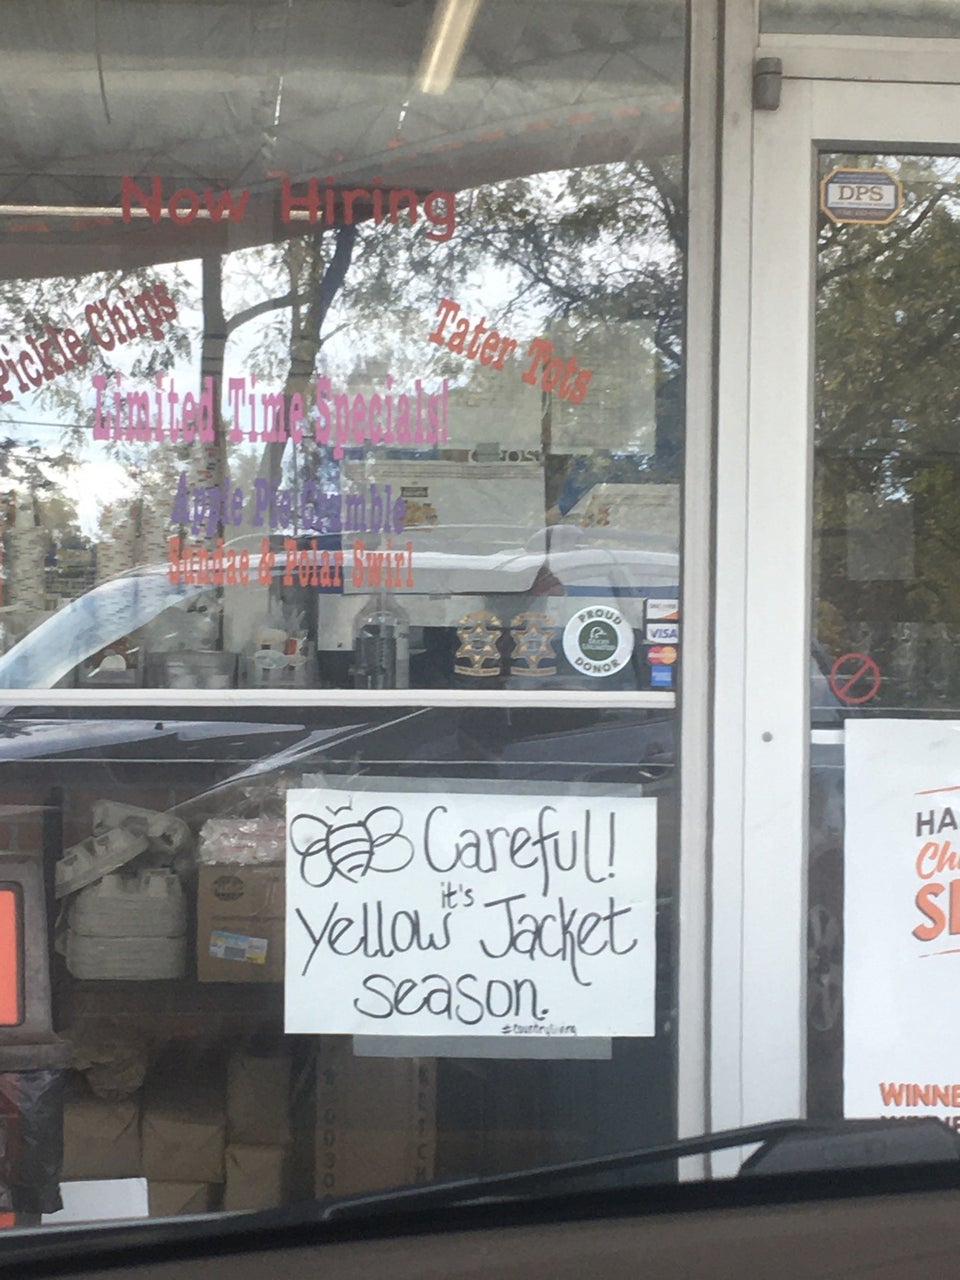 Now Hiring
Pickle Chips
Tater Tots
Limited Time Specials!
Apple Pie Crumble
Sundae & Polar Swirl
DPS
PROUD
DUCKS
UNLIMITED
DONOR
VISA
Careful!
it's
Yellow Jacket
season.
#countryliving
HA
Ch
S
WINNE